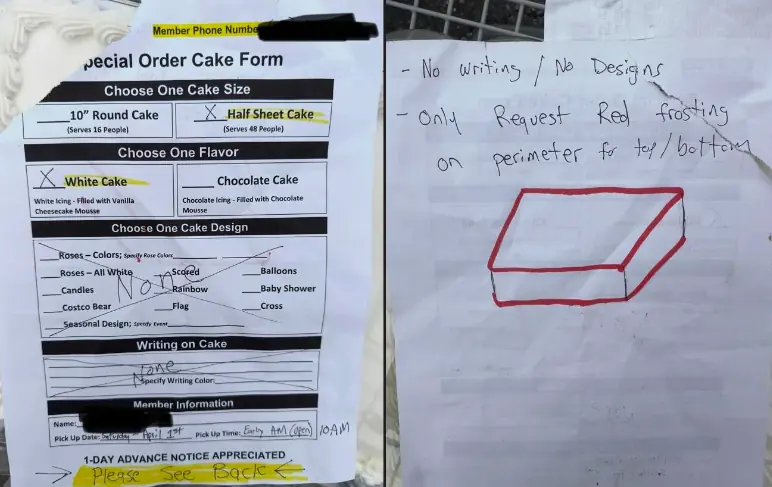 Member Phone Numbe
pecial Order Cake Form
Choose One Cake Size
10" Round Cake
(Serves 16 People)
X Half Sheet Cake
(Serves 48 People)
Choose One Flavor
X White Cake
White Icing - Filled with Vanilla
Cheesecake Mousse
Chocolate Cake
Chocolate Icing - Filled with Chocolate
Mousse
Choose One Cake Design
Roses – Colors; Specify Rose Colors
Roses – All White
Scored
Balloons
Candles
Rainbow
Baby Shower
Costco Bear
Flag
Cross
Seasonal Design; Specify Event
None
Writing on Cake
None
Specify Writing Color:
Member Information
Name:
Pick Up Date: Saturday - April 1st Pick Up Time: Early AM (open) 10AM
1-DAY ADVANCE NOTICE APPRECIATED
→ Please See Back ←
- No writing / No Designs
- Only Request Red frosting
on perimeter for top/bottom